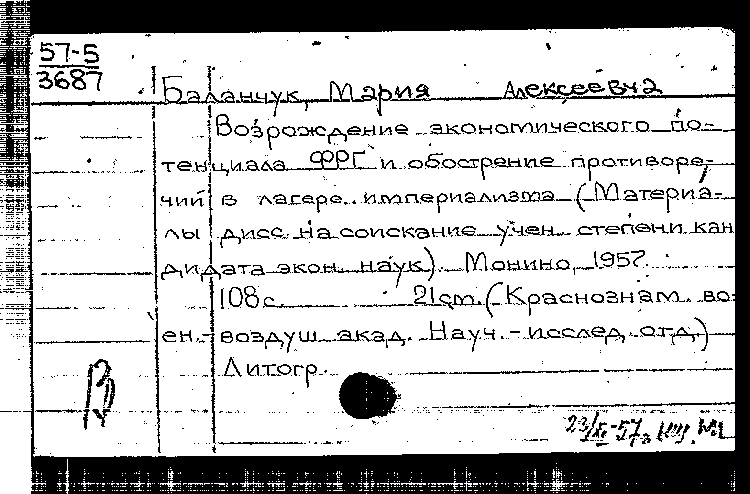 57-5
3687
Баланчук, Мария Алексеевна
Возрождение экономического по-
тенциала ФРГ и обострение противоре-
чий в лагере империализма (Материа-
лы дисс. на соискание учен. степени кан
дидата экон. наук). Монино, 1957.
108 с. 21 см. (Краснознам. во-
ен.-воздуш. акад. Науч.-исслед. отд.)
Литогр.
23/XI-57г.